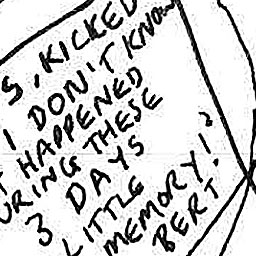 S, KICKED
I DON'T KNOW
T HAPPENED
URING THESE
3 DAYS
LITTLE
MEMORY!?
BERT